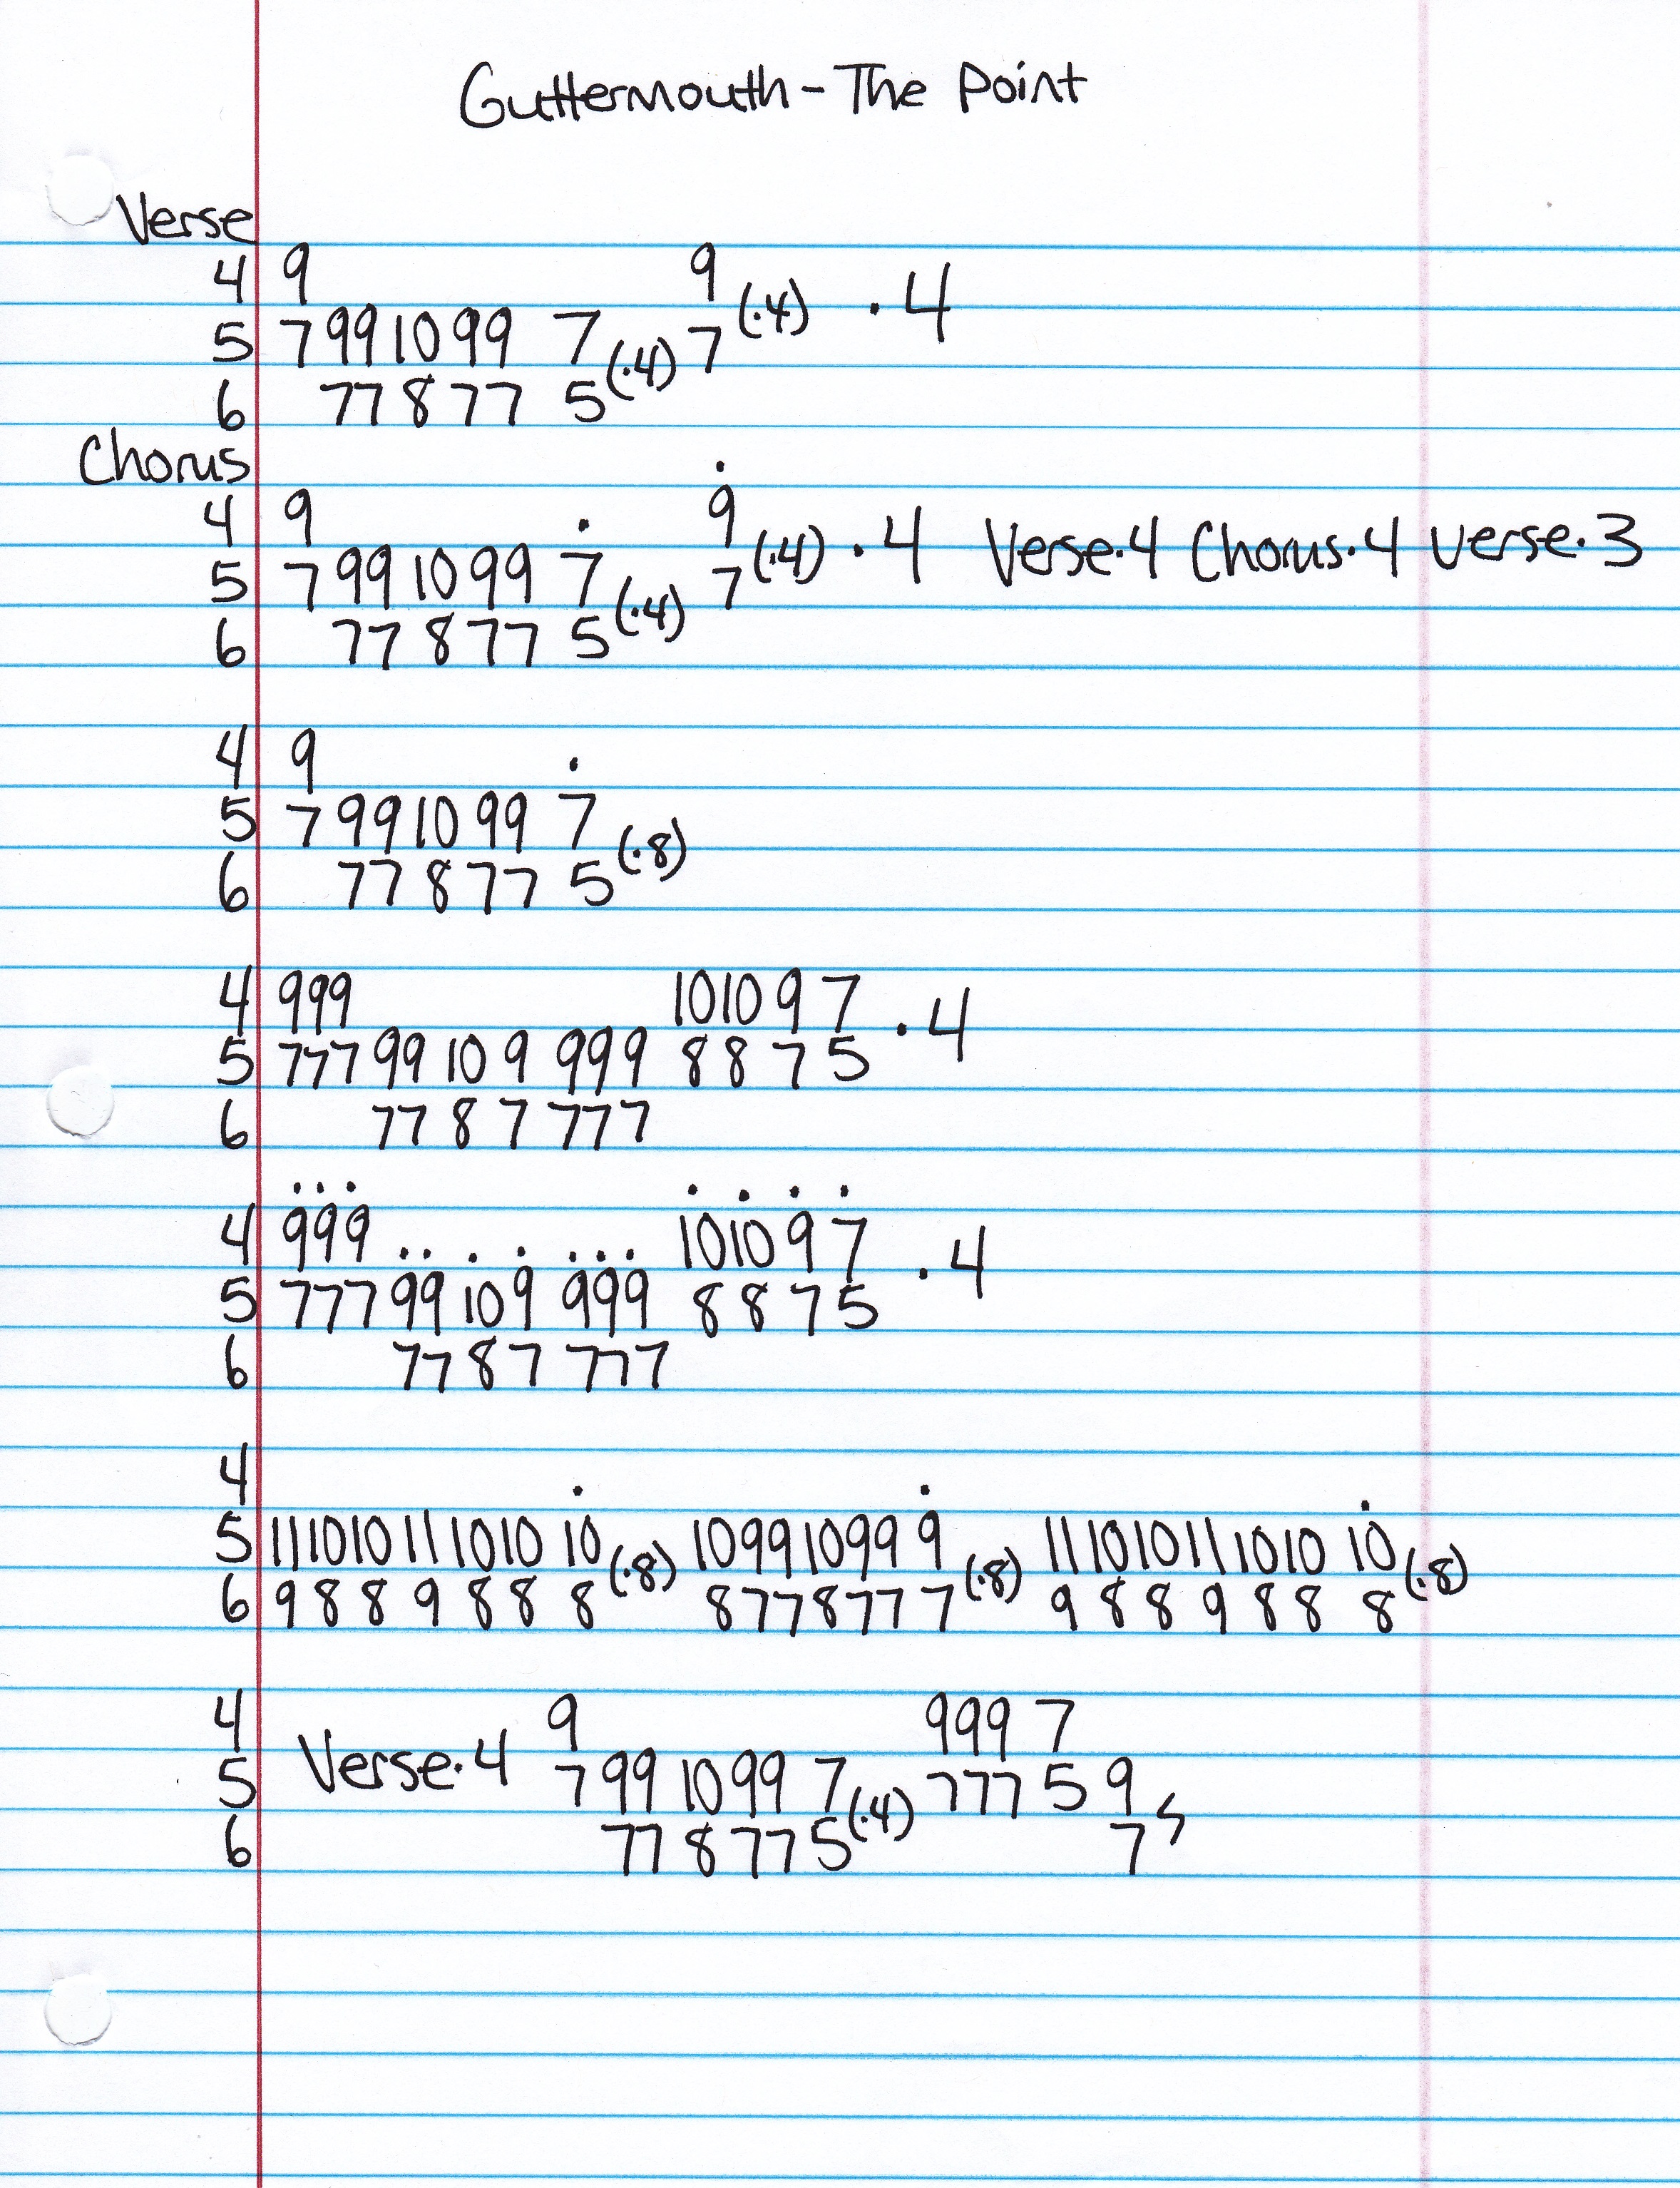 Guttermouth - The Point
Verse
4 9 9
5 7 99 10 99 7 (·4) 7 (·4) · 4
6 77 8 77 5
Chorus
4 9 9
5 7 99 10 99 7 (·4) 7 (·4) · 4 Verse·4 Chorus·4 Verse·3
6 77 8 77 5
4 9
5 7 99 10 99 7 (·8)
6 77 8 77 5
4 999 10 10 9 7
5 777 99 10 9 999 8 8 7 5 · 4
6 77 8 7 777
4 999 10 10 9 7
5 777 99 10 9 999 8 8 7 5 · 4
6 77 8 7 777
4
5 11 10 10 11 10 10 10 (·8) 10 99 10 99 9 (·8) 11 10 10 11 10 10 10 (·8)
6 9 8 8 9 8 8 8 8 77 8 77 7 9 8 8 9 8 8 8
4 9 999 7
5 Verse·4 7 99 10 99 7 (·4) 777 5 9
6 77 8 77 5 7